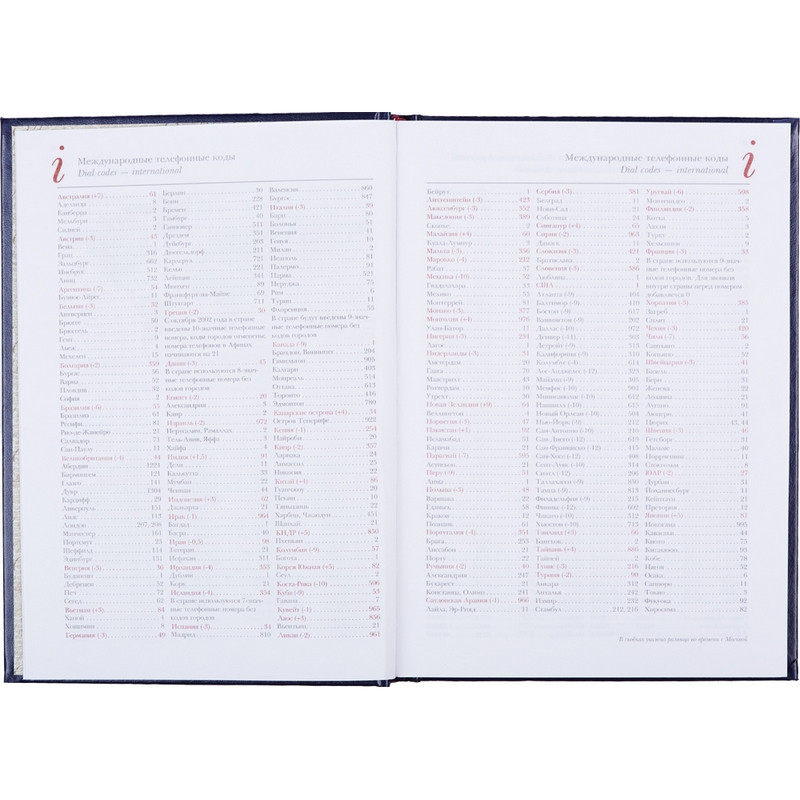 i
Международные телефонные коды
Dial codes — international
Австралия (+7) 61
Аделаида 8
Канберра 2
Мельбурн 3
Сидней 2
Австрия (-2) 43
Вена 1
Грац 316
Зальцбург 662
Инсбрук 512
Линц 732
Аргентина (-7) 54
Буэнос-Айрес 11
Бельгия (-2) 32
Антверпен 3
Брюгге 50
Брюссель 2
Гент 9
Льеж 4
Мехелен 15
Болгария (-2) 359
Бургас 56
Варна 52
Пловдив 32
София 2
Бразилия (-6) 55
Бразилиа 61
Ресифи 81
Рио-де-Жанейро 21
Салвадор 71
Сан-Паулу 11
Великобритания (-4) 44
Абердин 1224
Бирмингем 121
Глазго 141
Дувр 1304
Кардифф 29
Ливерпуль 151
Лидс 113
Лондон 207, 208
Манчестер 161
Портсмут 23
Шеффилд 114
Эдинбург 131
Венгрия (-2) 36
Будапешт 1
Дебрецен 52
Печ 72
Сегед 62
Вьетнам (+3) 84
Ханой 4
Хошимин 8
Германия (-2) 49
Берлин 30
Бонн 228
Бремен 421
Гамбург 40
Ганновер 511
Дрезден 351
Дуйсбург 203
Дюссельдорф 211
Карлсруэ 721
Кельн 221
Лейпциг 341
Мюнхен 89
Франкфурт-на-Майне 69
Штутгарт 711
Греция (-2) 30
С октября 2002 года в стране
введены 10-значные телефонные
номера, коды городов отменены;
номера телефонов в Афинах
начинаются на 21
Дания (-2) 45
В стране используются 8-знач-
ные телефонные номера без
кодов городов
Египет (-2) 20
Александрия 3
Каир 2
Израиль (-2) 972
Иерусалим, Рамалла 2
Тель-Авив, Яффа 3
Хайфа 4
Индия (+1,5) 91
Дели 11
Калькутта 33
Мумбаи 22
Ченнаи 44
Индонезия (+3) 62
Джакарта 21
Ирак (-1) 964
Багдад 1
Басра 40
Иран (-0,5) 98
Тегеран 21
Исфахан 311
Ирландия (-4) 353
Дублин 1
Корк 21
Исландия (-4) 354
В стране используются 7-знач-
ные телефонные номера без
кодов городов
Испания (-3) 34
Мадрид 810
Валенсия 860
Бургос 847
Италия (-2) 39
Бари 80
Болонья 51
Венеция 41
Генуя 10
Милан 2
Неаполь 81
Палермо 91
Парма 521
Перуджа 75
Рим 6
Турин 11
Флоренция 55
В стране будут введены 9-знач-
ные телефонные номера без
кодов городов
Канада (-9) 1
Брандон, Виннипег 204
Гамильтон 905
Калгари 403
Монреаль 514
Оттава 613
Торонто 416
Эдмонтон 780
Канарские острова (+4) 34
Остров Тенерифе 922
Кения (-1) 254
Найроби 20
Кипр (-2) 357
Ларнака 24
Лимассол 25
Никосия 22
Китай (+4) 86
Гуанчжоу 20
Пекин 10
Тяньцзинь 22
Харбин, Чжаодун 451
Шанхай 21
КНДР (+5) 850
Пхеньян 2
Колумбия (-9) 57
Богота 1
Корея Южная (+5) 82
Сеул 2
Коста-Рика (-10) 506
Куба (-9) 53
Гавана 7
Кувейт (-1) 965
Лаос (+3) 856
Вьентьян 21
Ливан (-2) 961
Международные телефонные коды
Dial codes — international
i
Бейрут 1
Лихтенштейн (-3) 423
Люксембург (-3) 352
Македония (-3) 389
Скопье 2
Малайзия (+4) 60
Куала-Лумпур 3
Мальта (-2) 356
Марокко (-4) 212
Рабат 37
Мексика (-10) 52
Гвадалахара 33
Мехико 55
Монтеррей 81
Монако (-3) 377
Монголия (+4) 976
Улан-Батор 11
Нигерия (-3) 234
Лагос 1
Нидерланды (-3) 31
Амстердам 20
Гаага 70
Маастрихт 43
Роттердам 10
Утрехт 30
Новая Зеландия (+9) 64
Веллингтон 4
Норвегия (-3) 47
Пакистан (+1) 92
Исламабад 51
Карачи 21
Парагвай (-7) 595
Асунсьон 21
Перу (-9) 51
Лима 1
Польша (-3) 48
Варшава 22
Гданьск 58
Краков 12
Познань 61
Португалия (-3) 351
Брага 253
Лиссабон 21
Порту 22
Румыния (-2) 40
Александрия 247
Бухарест 21
Констанца, Олимп 241
Саудовская Аравия (-1) 966
Лайла, Эр-Рияд 11
Сербия (-3) 381
Белград 11
Нови-Сад 21
Суботица 24
Сингапур (+4) 65
Сирия (-2) 963
Дамаск 11
Словакия (-3) 421
Братислава 2
Словения (-3) 386
Любляна 1
США 1
Атланта (-9) 404
Балтимор (-9) 410
Бостон (-9) 617
Вашингтон (-9) 202
Даллас (-10) 972
Денвер (-11) 303
Детройт (-9) 313
Калифорния (-9) 310
Колумбус (-9) 614
Лос-Анджелес (-12) 323
Майами (-9) 305
Мемфис (-10) 901
Миннеаполис (-10) 612
Нашвилл (-10) 615
Новый Орлеан (-10) 504
Нью-Йорк (-9) 212
Сан-Антонио (-10) 210
Сан-Диего (-12) 619
Сан-Франциско (-12) 415
Сан-Хосе (-12) 408
Сент-Луис (-10) 314
Сиэтл (-12) 206
Таллахасси (-9) 850
Тампа (-9) 813
Филадельфия (-9) 215
Финикс (-12) 602
Чикаго (-10) 312
Хьюстон (-10) 713
Таиланд (+3) 66
Бангкок 2
Тайвань (+4) 886
Тайпей 2
Тунис (-3) 216
Турция (-2) 90
Анкара 312
Анталья 242
Измир 232
Стамбул 212, 216
Уругвай (-6) 598
Монтевидео 2
Финляндия (-2) 358
Котка 5
Лахти 3
Турку 2
Хельсинки 9
Франция (-3) 33
В стране используются 9-знач-
ные телефонные номера без
кодов городов. Для звонков
внутри страны перед номером
добавляется 0
Хорватия (-3) 385
Загреб 1
Сплит 21
Чехия (-3) 420
Чили (-7) 56
Сантьяго 2
Копьяпо 52
Швейцария (-3) 41
Базель 61
Берн 31
Женева 22
Лозанна 21
Лугано 91
Люцерн 41
Цюрих 43, 44
Швеция (-3) 46
Гетеборг 31
Мальме 40
Норрчепинг 11
Стокгольм 8
ЮАР (-2) 27
Дурбан 31
Йоханнесбург 11
Кейптаун 21
Претория 12
Япония (+5) 81
Иокогама 45
Кавасаки 44
Киото 75
Китакюсю 93
Кобе 78
Нагоя 52
Осака 6
Саппоро 11
Токио 3
Фукуока 92
Хиросима 82
В скобках указана разница во времени с Москвой